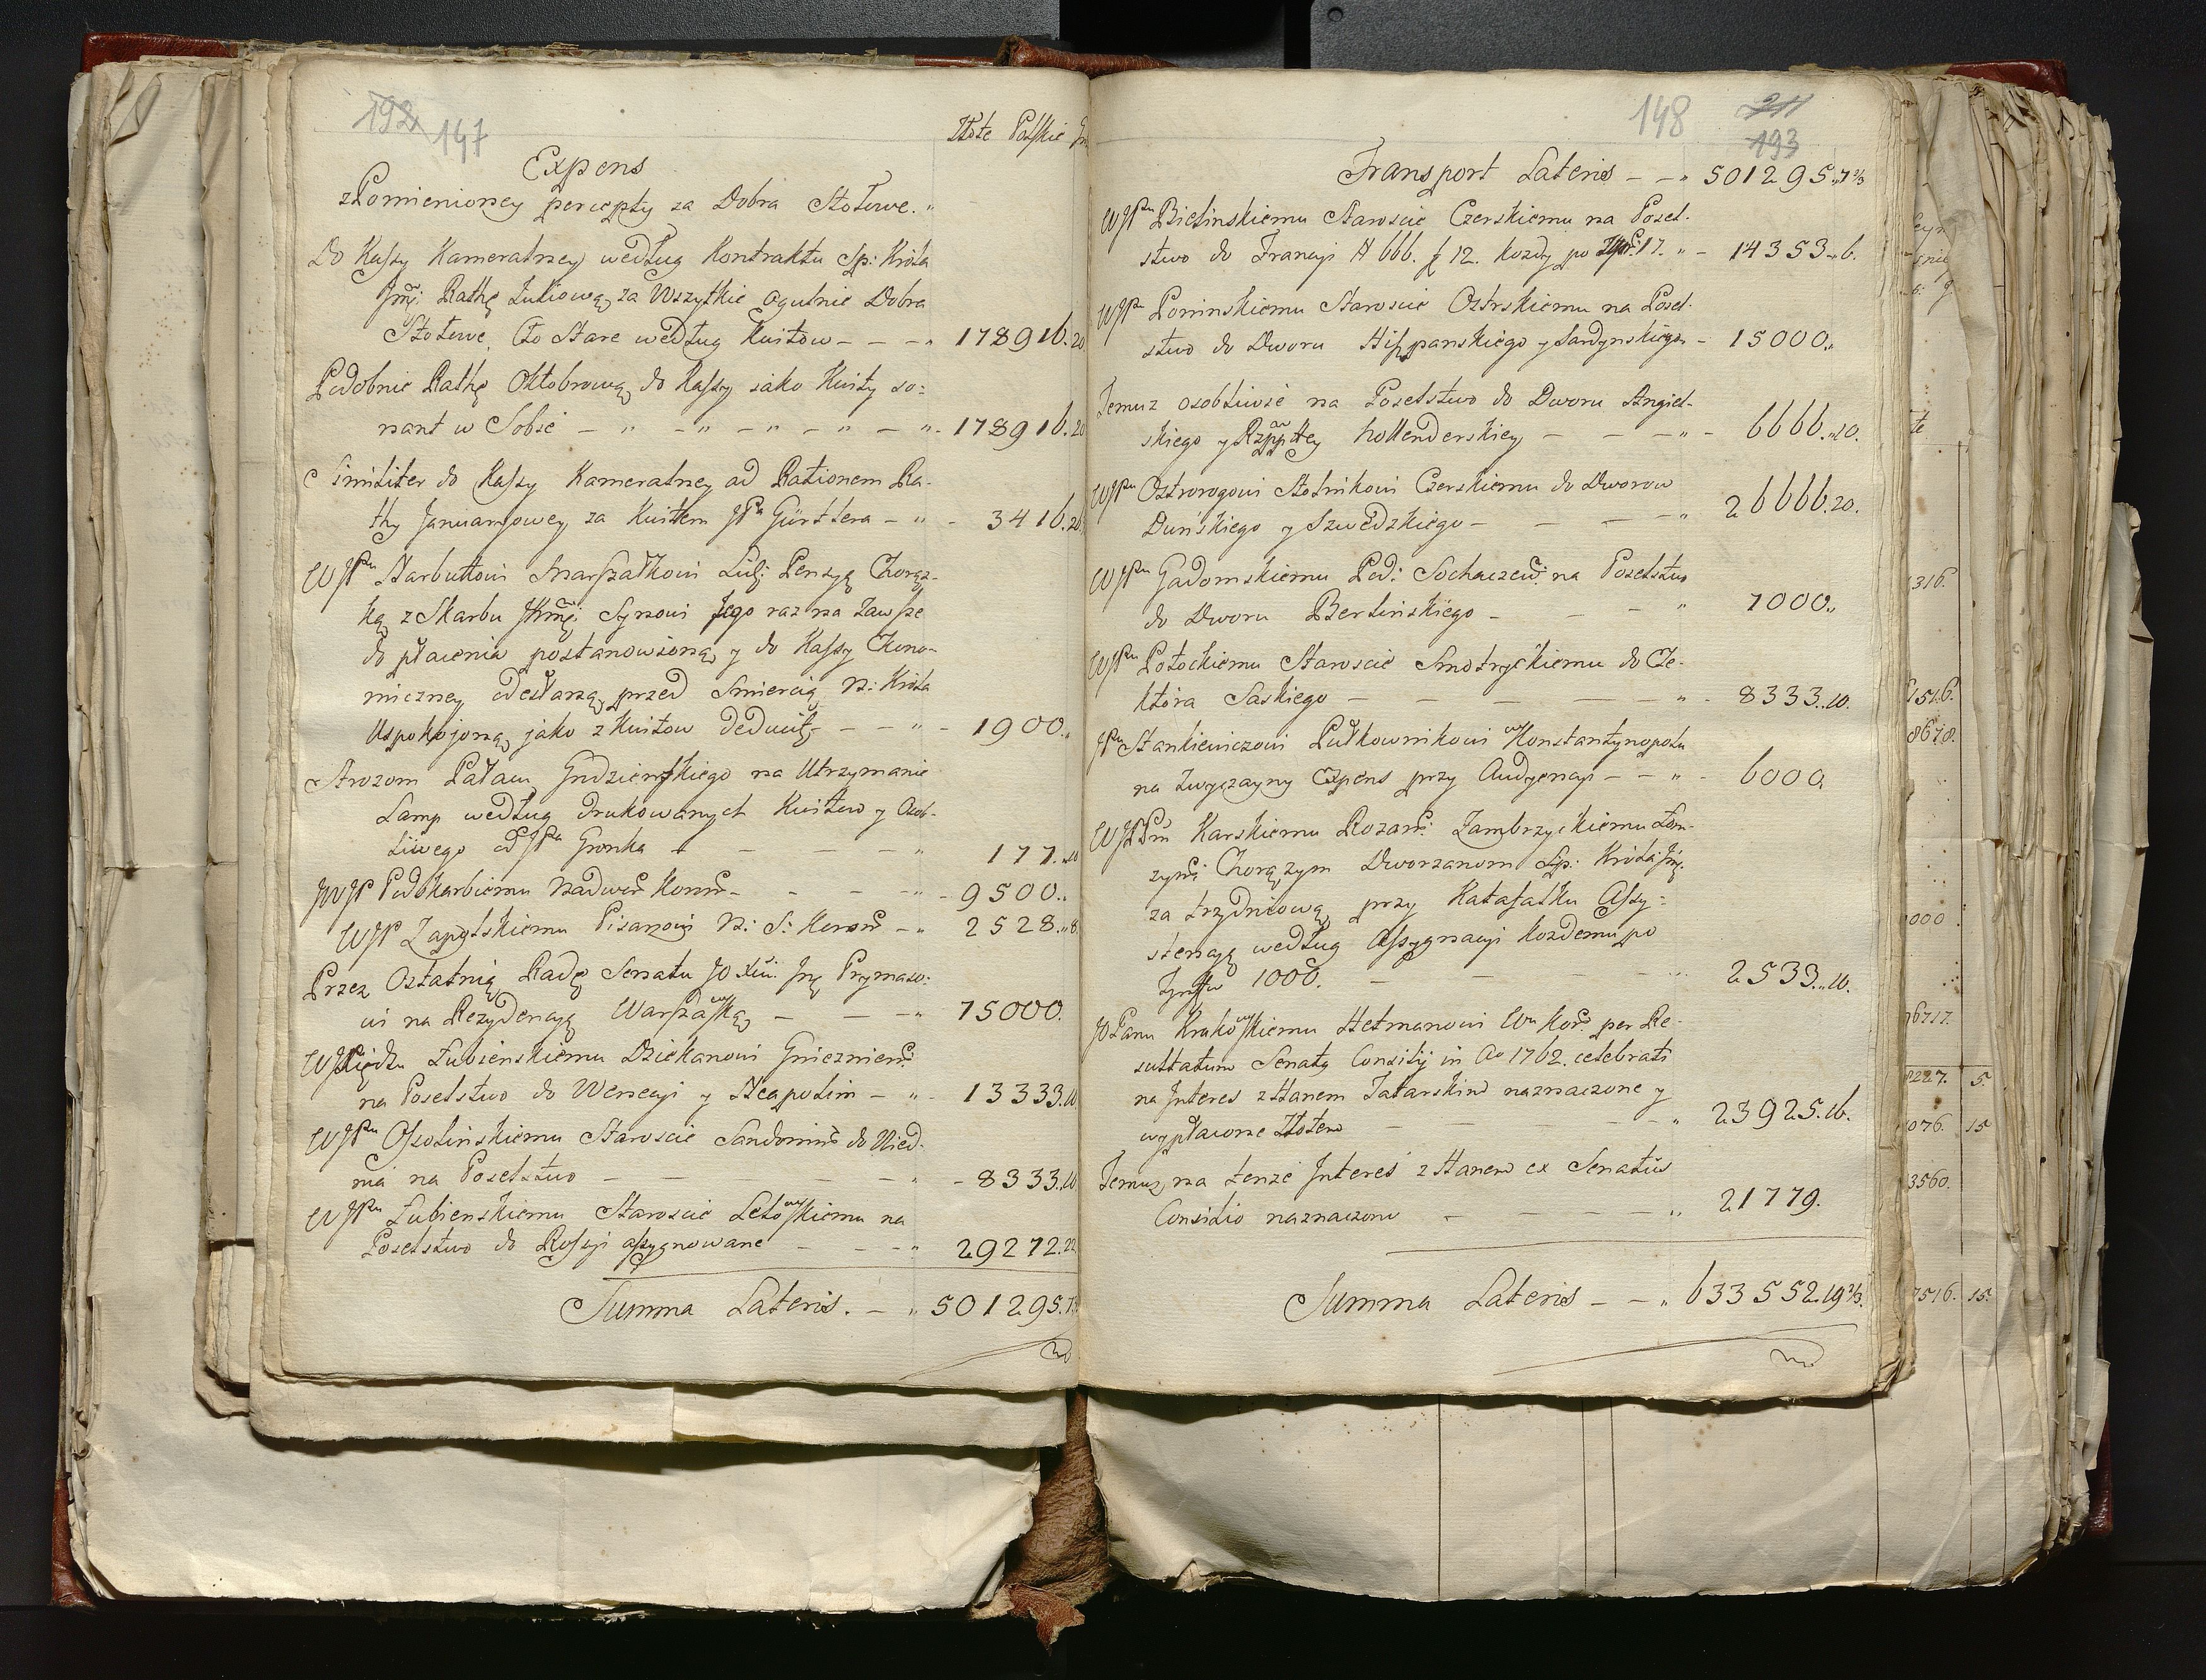 192 147
Złote Polskie
Expens
z Pomienioney percepty za Dobra Stołowe.
Do Kassy Kameralney według Kontraktu Sp: Króla
Jmci Rathę Juliową za Wszytkie Ogulnie Dobra
Stołowe, Cło Stare według Kwitow - - - 178916.20
Podobnie Rathę Oktobrową do Kassy iako Kwity so:
nant w Sobie - - - - - 178916.20
Similiter do Kassy Kameralney ad Rationem Ra-
thy Januariowey za Kwitem JPa Gürttera - - 3416.20
WJPu Narbuttowi Marszałkowi Lidz: Pensyą Chorąz-
ką z Skarbu JKmci Synowi Jego raz na Zawsze
do płacenia postanowioną y do Kassy Ekono-
miczney odesłaną przed Smiercią N: Króla
Uspokojoną jako z Kwitow deducitr - - - 1900.
Strozom Pałacu Grudzienskiego na Utrzymanie
Lamp według drukowanych Kwitow y Osob-
liwego od JPa Gronka - - - 177.10
JWJP Podskarbiemu Nadwer: Koron: - - - 9500.
WJP Zapolskiemu Pisarzowi N: S: Koron: - - 2528.8
Przez Ostatnią Radę Senatu JO Xciu Jmci Prymaso:
wi na Rezydencyą Warszawską - - - 75000.
WJXiędzu Łubienskiemu Dziekanowi Gnieznien:
na Poselstwo do Wenecyi y Neapolim - - 13333.10
WJPu Ossolinskiemu Staroscie Sandomir: do Wied-
nia na Poselstwo - - - - 8333.10
WJPu Łubienskiemu Staroscie Lelowskiemu na
Poselstwo do Rossyi assygnowane - - - 29272.22
Summa Lateris. - 501295.7
148 211
193
Transport Lateris - - 501295.7⅔
WJPu Bielinskiemu Staroscie Czerskiemu na Posel-
stwo do Francyi # 666. f 12. kozdy po 17. - 14353.6.
WJPu Poninskiemu Staroscie Ostrskiemu na Posel-
stwo do Dworu Hiszpanskiego y Sardynskiego - 15000.
Temuz osobliwie na Poselstwo do Dworu Angiel-
skiego y Rzppltey Hollenderskiey - - - 6666.20.
WJPu Ostrorogowi Stolnikowi Czerskiemu do Dworow
Duńskiego y Szwedzkiego - - - - 26666.20.
WJPu Gadomskiemu Pod: Sochaczew: na Poselstwo
do Dworu Berlinskiego - - - 7000.
WJPu Potockiemu Staroscie Smotryckiemu do Ele-
ktora Saskiego - - - - - 8333.10.
JPu Stankiewiczowi Pułkownikowi w Konstantynopolu
na Zwyczayny Expens przy Audyencyi - - - 6000.
WJPPm Karskiemu Rozan: Zambrzyckiemu Lom-
zyn: Chorązym Dworzanom Sp: Króla Jmci
za trzydniową przy Katafalku Assy:
stencyą według Assygnacyi kozdemu po
Tynfów 1000. - - - - 2533.10.
JO Panu Krakowskiemu Hetmanowi Wu Kor: per Re-
sultatum Senatq Consilij in Ao 1762. celebrati
na Interes z Hanem Tatarskim naznaczone y
wypłacone Złotem - - - 23925.16.
Temuz na tenże Interes z Hanem ex Senatûs
Consilio naznaczone - - - - 21779.
Summa Lateris - - 633552.19⅔.
1316.
8678.
000
6717.
2227. 5.
076. 15
3560.
7516. 15.